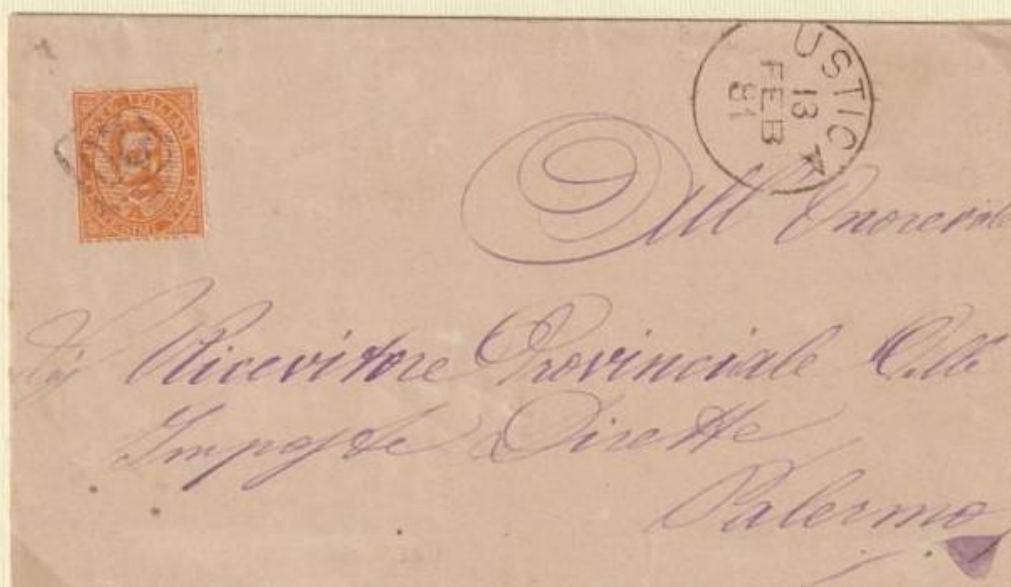 USTICA
13
FEB
81
All' Onorevole
Sig Ricevitore Provinciale Delle
Imposte Dirette
Palermo